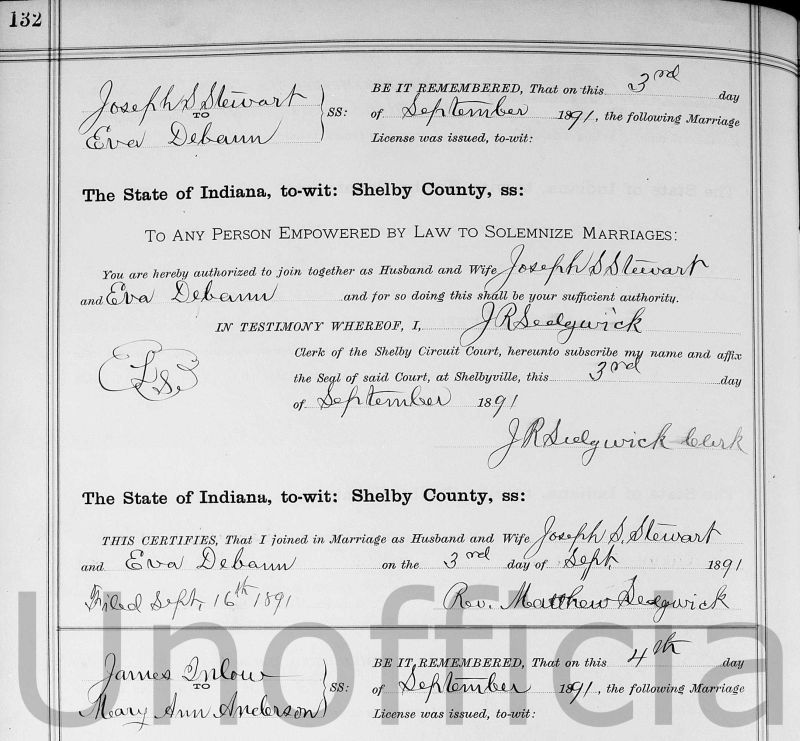 132
Joseph S Stewart
TO
Eva Debaun
SS:
BE IT REMEMBERED, That on this 3rd day
of September 1891, the following Marriage
License was issued, to-wit:
The State of Indiana, to-wit: Shelby County, ss:
TO ANY PERSON EMPOWERED BY LAW TO SOLEMNIZE MARRIAGES:
You are hereby authorized to join together as Husband and Wife Joseph S Stewart
and Eva Debaun and for so doing this shall be your sufficient authority.
IN TESTIMONY WHEREOF, I, J R Sedgwick
Clerk of the Shelby Circuit Court, hereunto subscribe my name and affix
L.S.
the Seal of said Court, at Shelbyville, this 3rd day
of September 1891
J R Sedgwick Clerk
The State of Indiana, to-wit: Shelby County, ss:
THIS CERTIFIES, That I joined in Marriage as Husband and Wife Joseph S. Stewart
and Eva Debaun on the 3rd day of Sept. 1891
Filed Sept. 16th 1891 Rev. Matthew Sedgwick
James Inlow
TO
Mary Ann Anderson
SS:
BE IT REMEMBERED, That on this 4th day
of September 1891, the following Marriage
License was issued, to-wit:
Unofficia